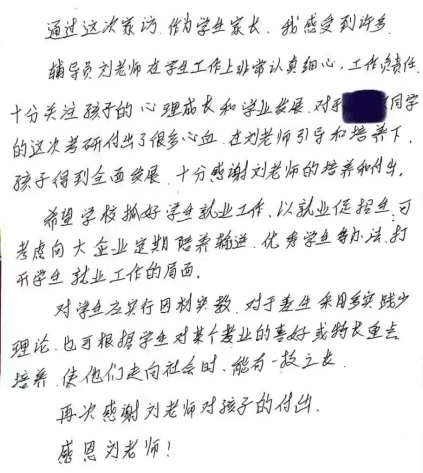 通过这次家访，作为学生家长，我感受到许多。
辅导员刘老师在学生工作上非常认真细心，工作负责任，
十分关注孩子的心理成长和学业发展，对于 同学
的这次考研付出了很多心血，在刘老师引导和培养下，
孩子得到全面发展，十分感谢刘老师的培养和付出。
希望学校抓好学生就业工作，以就业促招生，可
考虑向大企业定期培养输送优秀学生等办法，打
开学生就业工作的局面。
对学生应实行因材实教，对于差生采用多实践少
理论，也可根据学生对某个专业的喜好或特长重点
培养，使他们走向社会时，能有一技之长。
再次感谢刘老师对孩子的付出。
感恩刘老师！